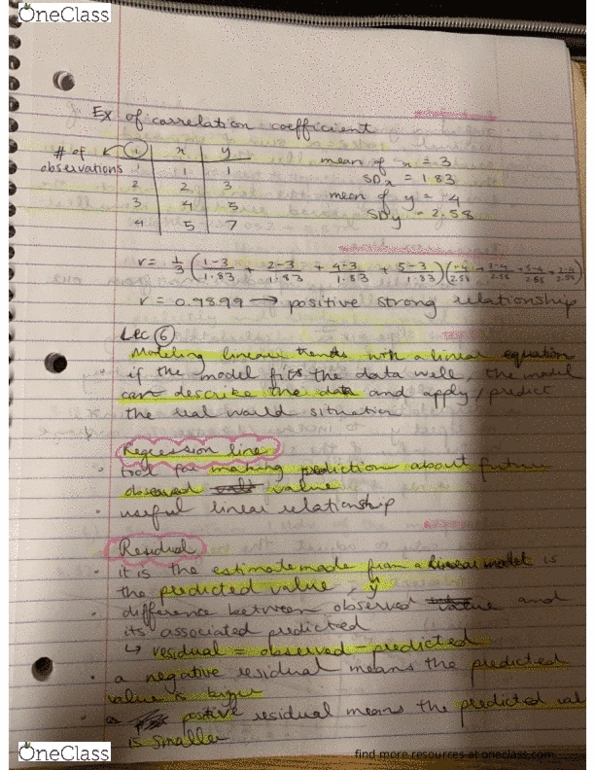 OneClass
Ex of carrelation coefficient
# of observations
i x y
1 1 1
2 2 3
3 4 5
4 5 7
mean of x = 3
SDx = 1.83
mean of y = 4
SDy = 2.58
r = 1/3 (1-3/1.83 + 2-3/1.83 + 4-3/1.83 + 5-3/1.83)(1-4/2.58 + 3-4/2.58 + 5-4/2.58 + 7-4/2.58)
r = 0.9899 → positive strong relationship
Lec 6
Modeling linear trends with a linear equation
· if the model fits the data well, the model
can describe the data and apply/predict
the real world situation
Regression line
· tool for making prediction about future
observed value
· useful linear relationship
Residual
· it is the estimate made from a linear model is
the predicted value, ŷ
· difference between observed value and
its associated predicted
↳ residual = observed - predicted
· a negative residual means the predicted
value is bigger
· a positive residual means the predicted val
is smaller
OneClass
find more resources at oneclass.com